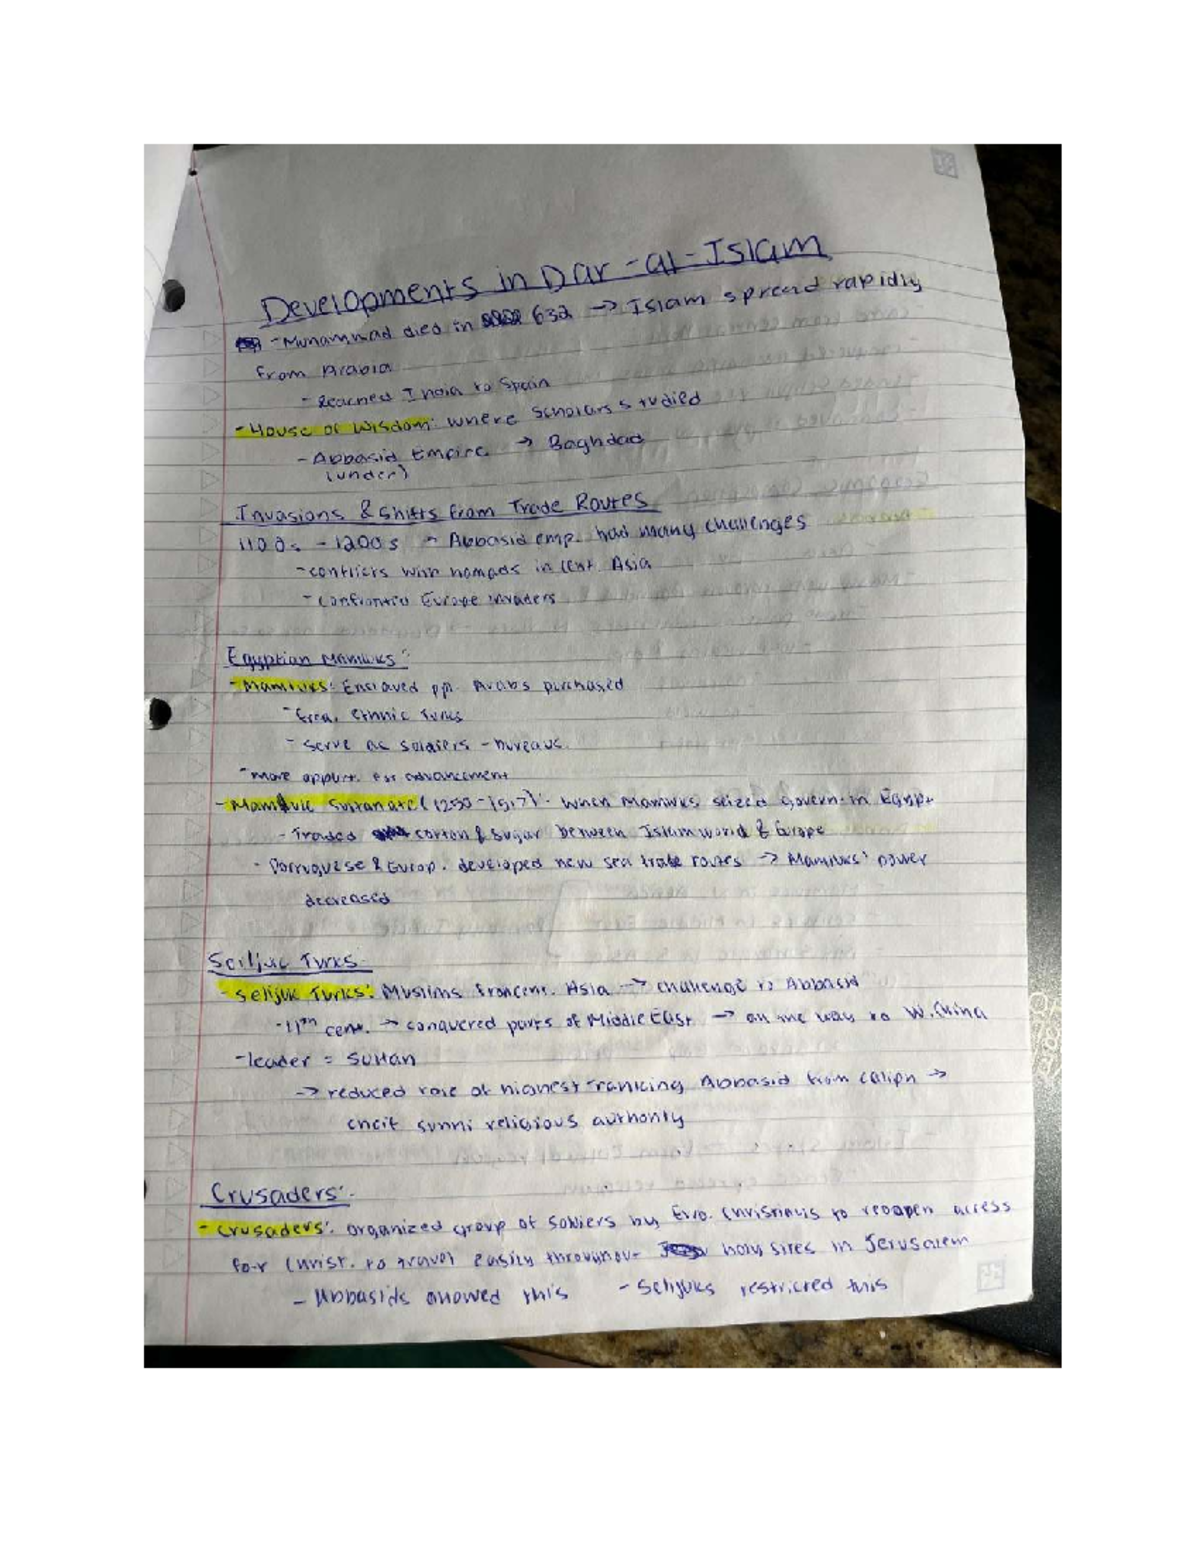 Developments in Dar-al-Islam
- Muhammad died in 632 → Islam spread rapidly
from Arabia
- Reached India to Spain
- House of Wisdom: where scholars studied
- Abbasid Empire → Baghdad
(under)
Invasions & Shifts from Trade Routes
1100s - 1200s - Abbasid emp. had many challenges
- conflicts with nomads in cent. Asia
- confronted Europe invaders
Egyptian Mamluks:
- Mamluks: Enslaved ppl. Arabs purchased
- freq. ethnic Turks
- serve as soldiers - bureauc.
- more opport. for advancement
- Mamluk Sultanate (1250-1517): when Mamluks seized govern. in Egypt
- Traded cotton & sugar between Islam world & Europe
- Portuguese & Europ. developed new sea trade routes → Mamluks' power
decreased
Seljuk Turks
- Seljuk Turks: Muslims from cent. Asia → challenge to Abbasid
- 11th cent. → conquered parts of Middle East → on the way to W. China
- leader = Sultan
→ reduced role of highest-ranking Abbasid from caliph →
cheif sunni religious authority
Crusaders:
- Crusaders: organized group of soldiers by Euro. Christians to reopen access
for Christ. to travel easily throughout holy sites in Jerusalem
- Abbasids allowed this - Seljuks restricted this